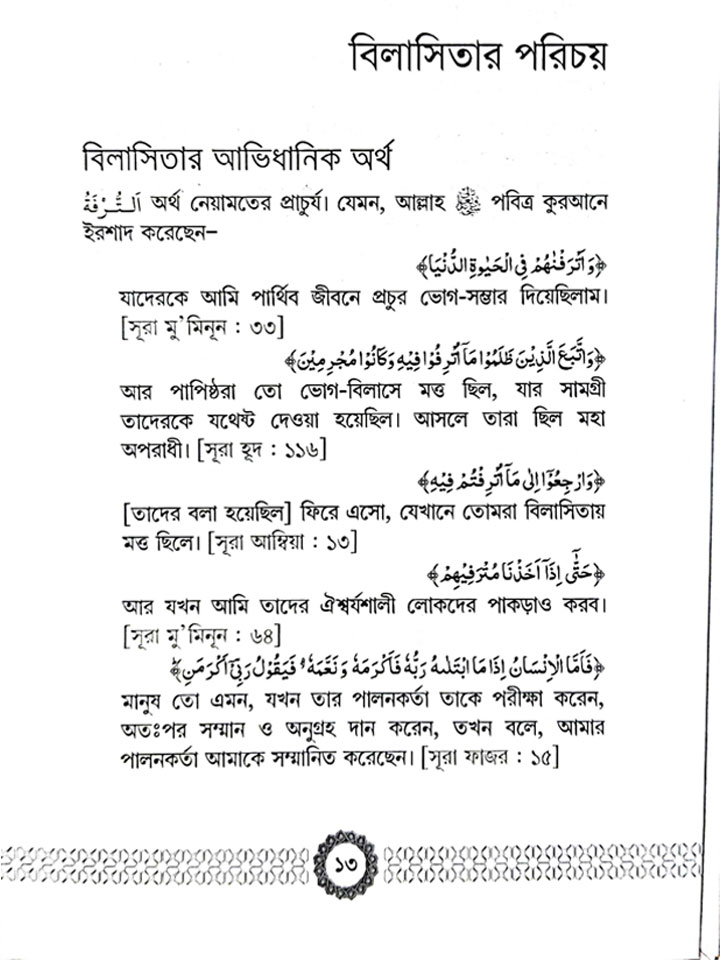 বিলাসিতার পরিচয়
বিলাসিতার আভিধানিক অর্থ
اَلتُّرْفَةُ অর্থ নেয়ামতের প্রাচুর্য। যেমন, আল্লাহ পবিত্র কুরআনে
ইরশাদ করেছেন–
﴿وَاَتْرَفْنٰهُمْ فِی الْحَیٰوةِ الدُّنْیَا﴾
যাদেরকে আমি পার্থিব জীবনে প্রচুর ভোগ-সম্ভার দিয়েছিলাম।
[সূরা মু'মিনূন : ৩৩]
﴿وَاتَّبَعَ الَّذِیْنَ ظَلَمُوْا مَاۤ اُتْرِفُوْا فِیْهِ وَكَانُوْا مُجْرِمِیْنَ﴾
আর পাপিষ্ঠরা তো ভোগ-বিলাসে মত্ত ছিল, যার সামগ্রী
তাদেরকে যথেষ্ট দেওয়া হয়েছিল। আসলে তারা ছিল মহা
অপরাধী। [সূরা হূদ : ১১৬]
﴿وَارْجِعُوْۤا اِلٰی مَاۤ اُتْرِفْتُمْ فِیْهِ﴾
[তাদের বলা হয়েছিল] ফিরে এসো, যেখানে তোমরা বিলাসিতায়
মত্ত ছিলে। [সূরা আম্বিয়া : ১৩]
﴿حَتّٰۤی اِذَاۤ اَخَذْنَا مُتْرَفِیْهِمْ﴾
আর যখন আমি তাদের ঐশ্বর্যশালী লোকদের পাকড়াও করব।
[সূরা মু'মিনূন : ৬৪]
﴿فَاَمَّا الْاِنْسَانُ اِذَا مَا ابْتَلٰىهُ رَبُّهٗ فَاَكْرَمَهٗ وَ نَعَّمَهٗ ۙ فَیَقُوْلُ رَبِّیْۤ اَكْرَمَنِ ؕ﴾
মানুষ তো এমন, যখন তার পালনকর্তা তাকে পরীক্ষা করেন,
অতঃপর সম্মান ও অনুগ্রহ দান করেন, তখন বলে, আমার
পালনকর্তা আমাকে সম্মানিত করেছেন। [সূরা ফাজর : ১৫]
১৩